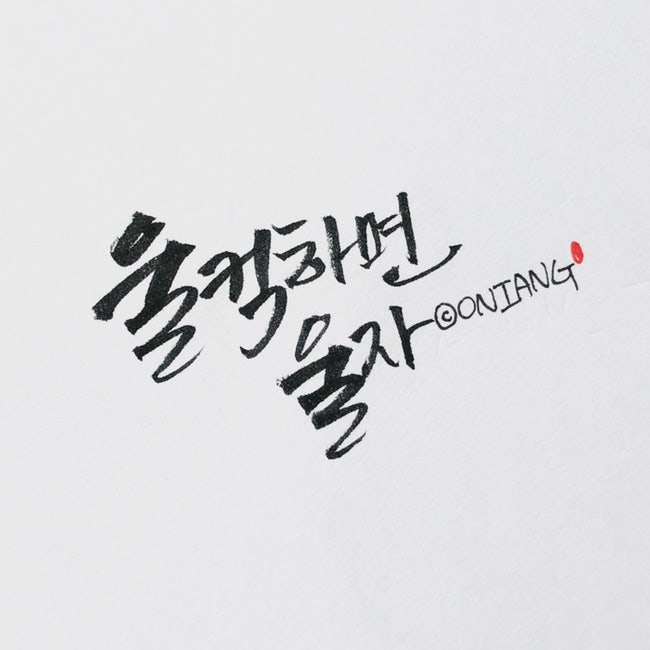 울컥하면
울자
©ONIANG